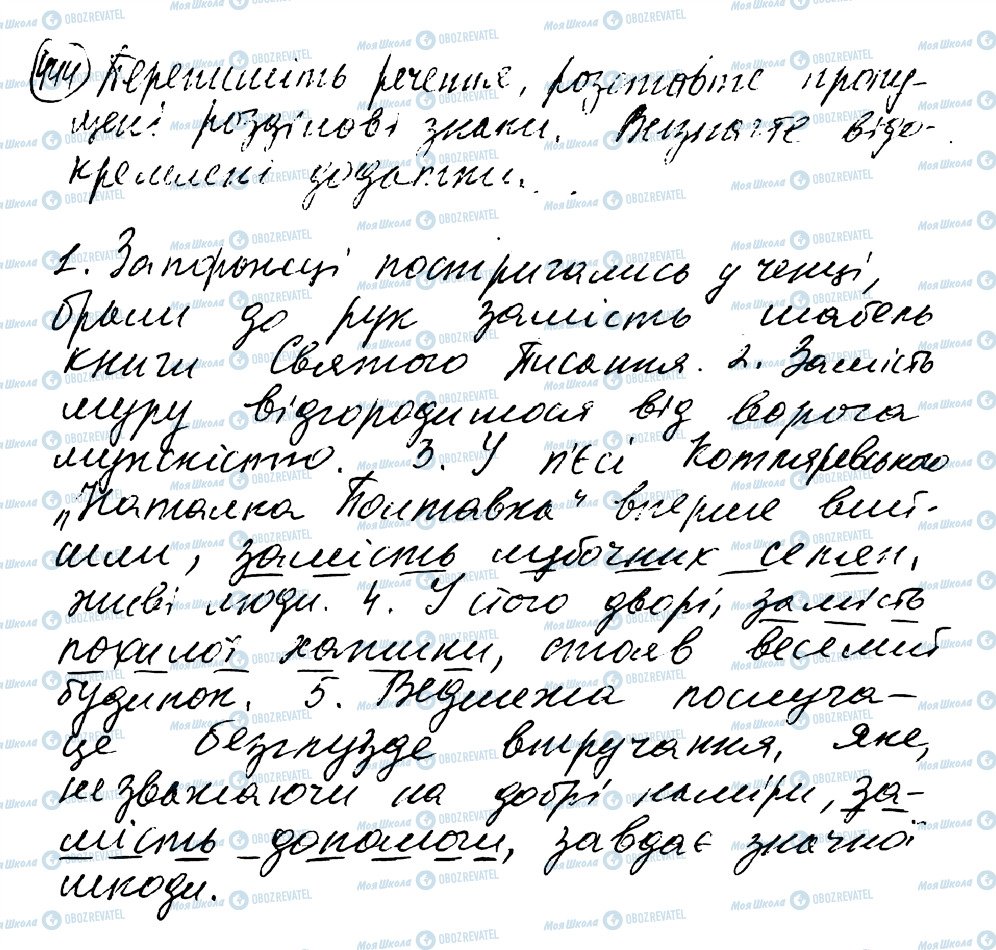 444 Перепишіть речення, розставте пропу-
щені розділові знаки. Визначте відо-
кремлені додатки.
1. Запорожці постригались у ченці,
брали до рук замість шабель
книги Святого Писання. 2. Замість
муру відгородимося від ворога
мужністю. 3. У п'єсі Котляревського
„Наталка Полтавка" вперше вий-
шли, замість лубочних селян,
живі люди. 4. У його дворі, замість
похилої хатинки, стояв веселий
будинок. 5. Ведмежа послуга –
це безглузде втручання, яке,
незважаючи на добрі наміри, за-
мість допомоги, завдає значної
шкоди.